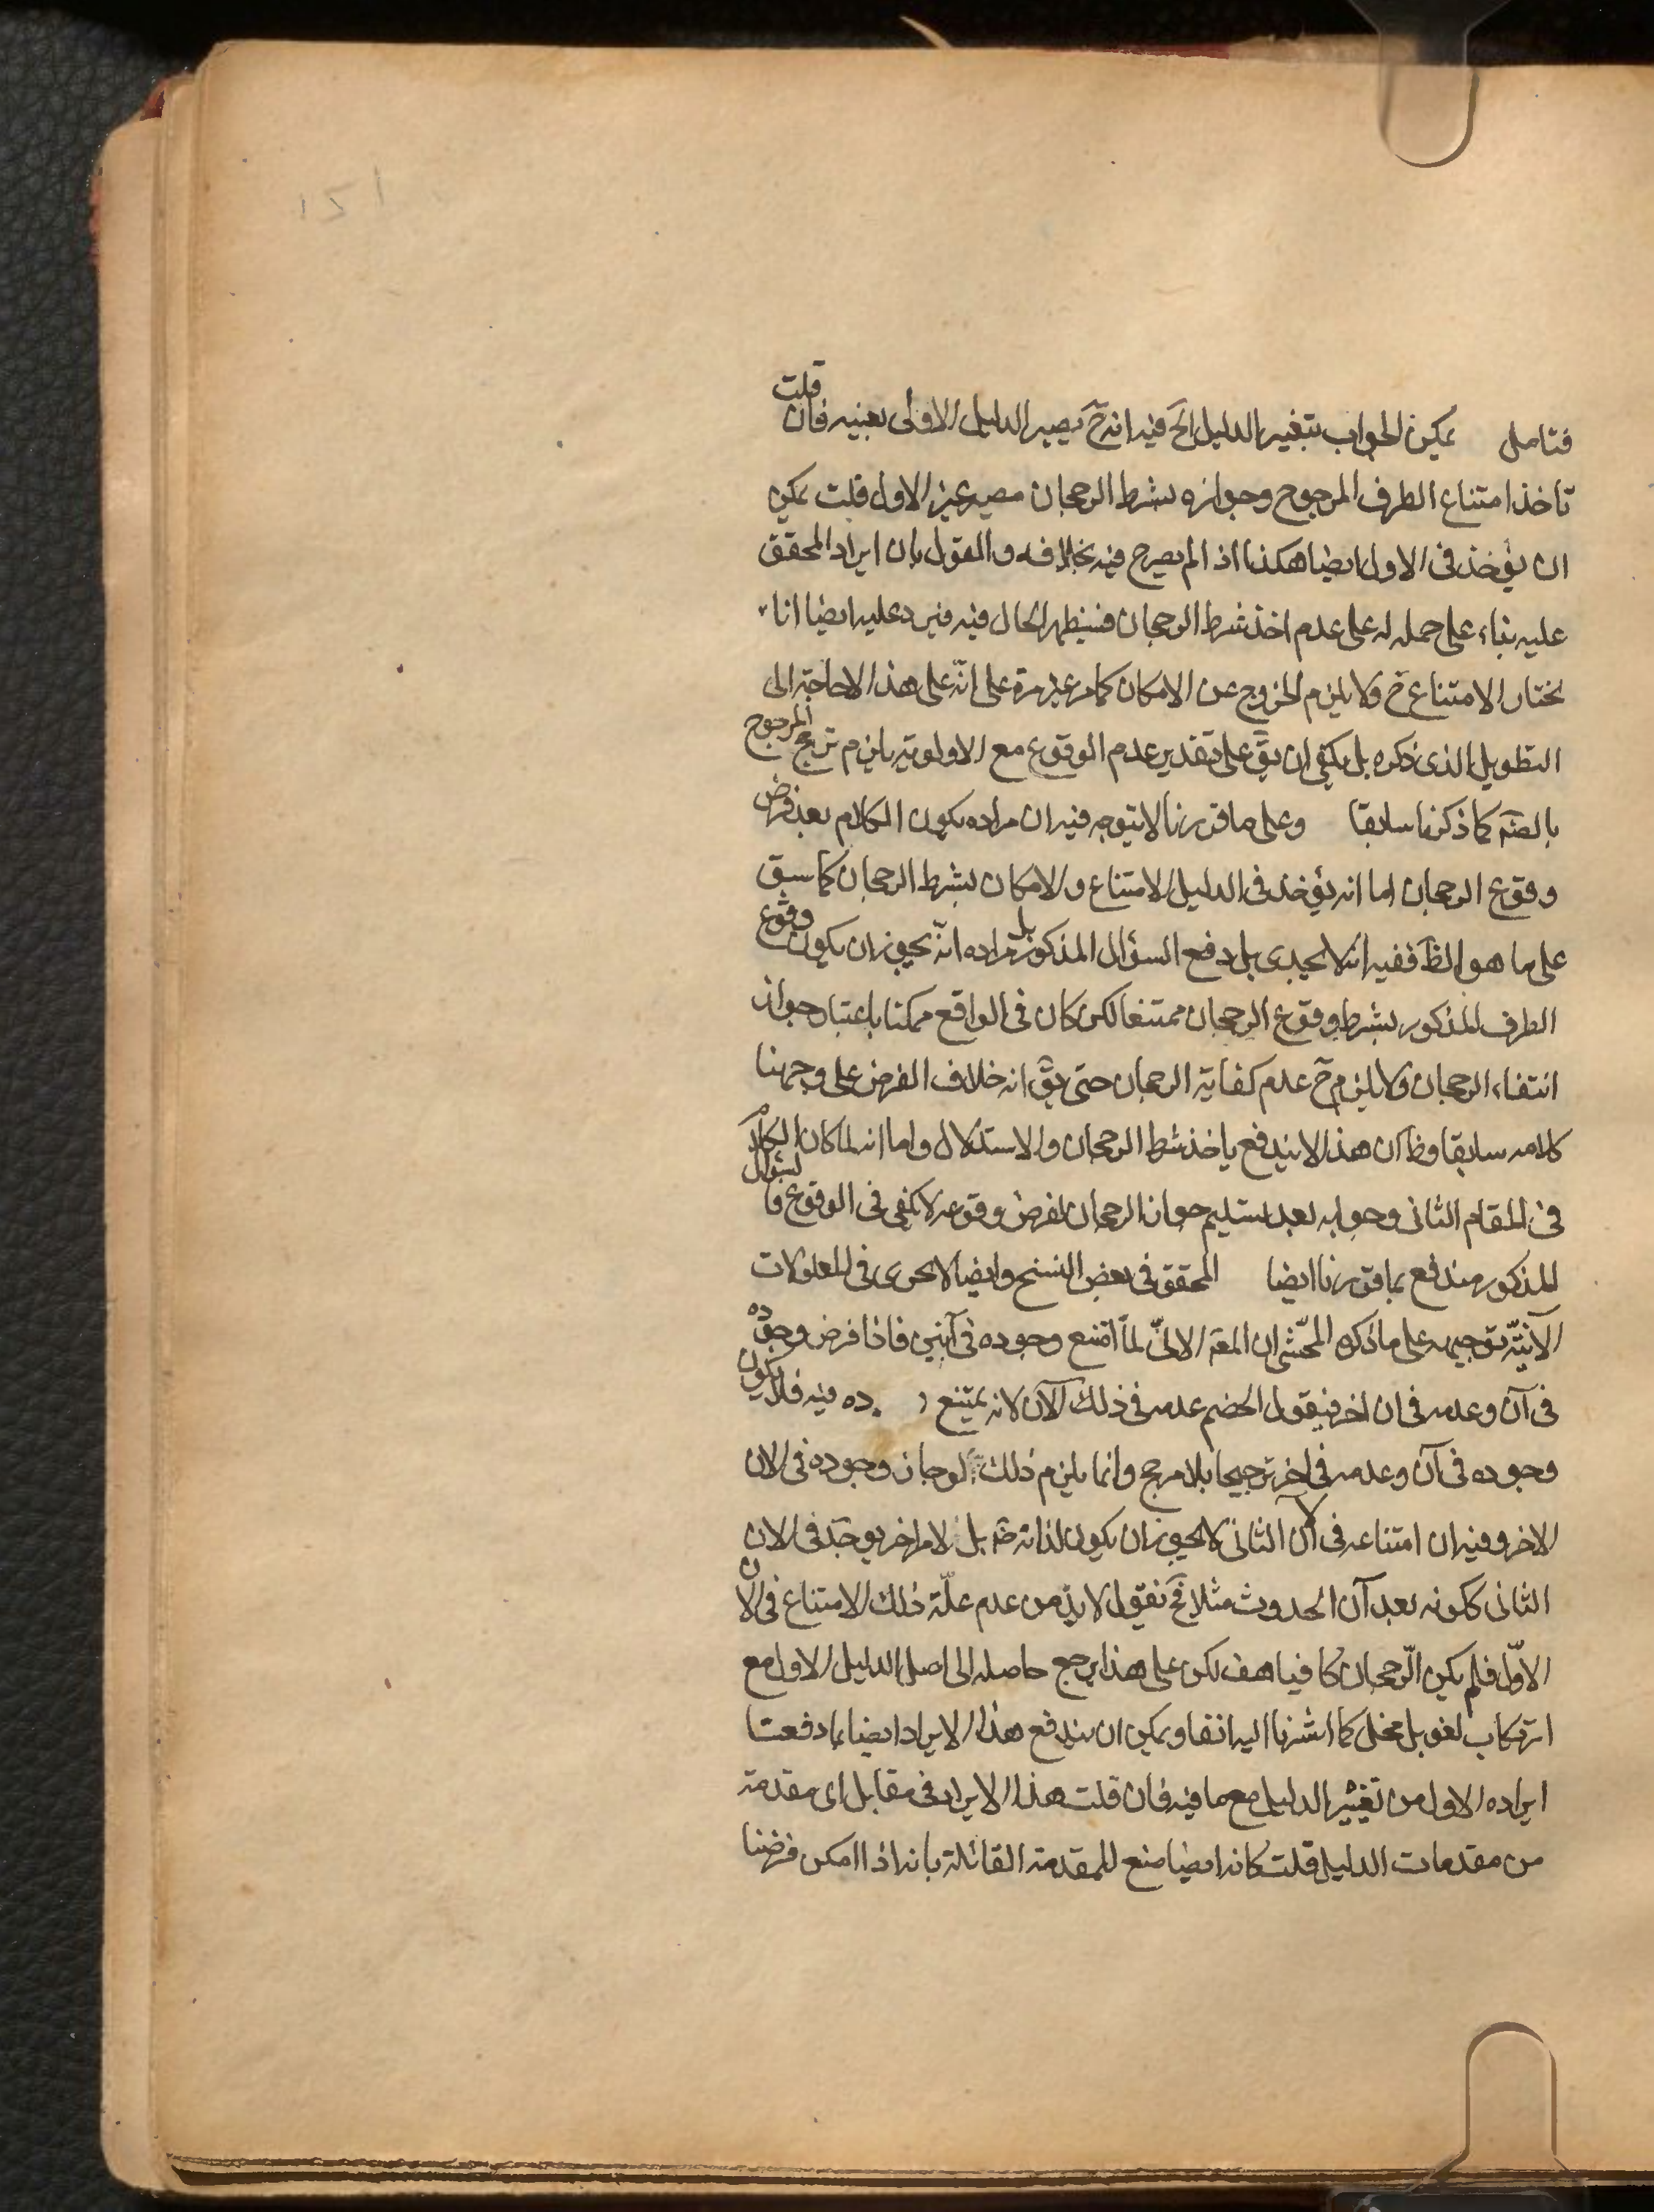 ١٥١
فتامل يمكن الجواب بتغيير الدليل الخ فيه انه ح يصير الدليل الاول بعينه فان قلت
تاخذ امتناع الطرف المرجوح وجوازه بشرط الرجحان فيصير غير الاول قلت يمكن
ان يؤخذ فى الاول ايضا هكذا اذ لم يصرح فيه بخلافه والقول بان ايراد المحقق
عليه بناء على حمله له على عدم اخذ شرط الرجحان فسيظهر الحال فيه فيرد عليه ايضا انا
نختار الامتناع ح ولا يلزم الخروج عن الامكان كما مر غير مرة على انّه على هذا لا حاجة الى
التطويل الذى ذكره بل يكفى ان يقّ على تقدير عدم الوقوع مع الاولوية يلزم ترجح المرجوح
بالضّه كما ذكرنا سابقا وعلى ما قررنا لا يتوجه فيه ان مراده بكون الكلام بعد فرض
وقوع الرجحان اما انه يؤخذ فى الدليل الامتناع والامكان بشرط الرجحان كما سبق
على ما هو الظّ ففيه انه لا يجدى بل دفع السؤال المذكور بل مراده انّه يجوز ان يكون وقوع
الطرف المذكور بشرط وقوع الرجحان ممتنعا لكن كان فى الواقع ممكنا باعتبار جواز
انتفاء الرجحان ولا يلزم ح عدم كفاية الرجحان حتى يقّ انه خلاف الفرض على وجهنا
كلامه سابقا وظ ان هذا لا يندفع باخذ شرط الرجحان والاستدلال واما انه لما كان الكلام
فى المقام الثانى وجوابه بعد تسليم جواز الرجحان بفرض وقوعه لا يكفى فى الوقوع فالسؤال
المذكور مندفع بما قررنا ايضا المحقق فى بعض النسخ وايضا لا يجرى فى المعلولات
الآنيّة توجيهه على ما ذكره المحّشى ان المعّه الانىّ لمّا امتنع وجوده فى آنين فاذا فرض وجوده
فى آن وعدمه فى ان اخر فيقول الخصم عدمه فى ذلك الآن لانه يمتنع ده فيه فلا يكون
وجوده فى آن وعدمه فى اخر ترجيحا بلا مرجح وانما يلزم ذلك لو جاز وجوده فى الان
الاخر وفيه ان امتناعه فى الآن الثانى لا يجوز ان يكون لذاته ضّه بل لامر اخر يوجد فى الان
الثانى ككونه بعد آن الحدوث مثلا فح نقول لا بدّ من عدم علّة ذلك الامتناع فى الان
الاوّل فلم يكن الرّجحان كافيا هف لكن على هذا يرجع حاصله الى اصل الدليل الاول مع
ارتكاب لغو بل مخل كما اشرنا اليه انفا ويمكن ان يندفع هذا الايراد ايضا بما دفعنا
ايراده الاول من تغيير الدليل مع ما فيه فان قلت هذا الايراد فى مقابل اى مقدمة
من مقدمات الدليل قلت كانه ايضا منع للمقدمة القائلة بانه اذا امكن فرضنا